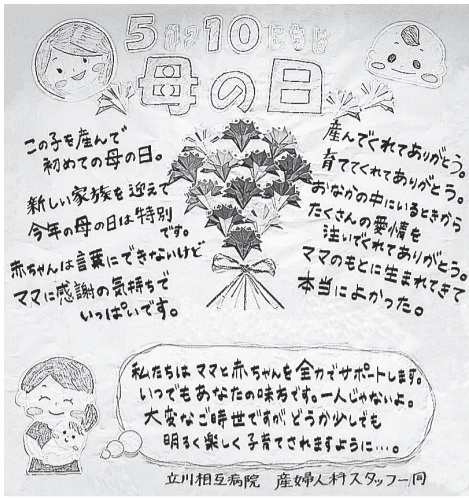 5がつ10にちは
母の日
この子を産んで
初めての母の日。
新しい家族を迎えて
今年の母の日は特別
です。
赤ちゃんは言葉にできないけど
ママに感謝の気持ちで
いっぱいです。
産んでくれてありがとう。
育ててくれてありがとう。
おなかの中にいるときから
たくさんの愛情を
注いでくれてありがとう。
ママのもとに生まれてきて
本当によかった。
私たちはママと赤ちゃんを全力でサポートします。
いつでもあなたの味方です。一人じゃないよ。
大変なご時世ですが、どうか少しでも
明るく楽しく子育てされますように…。
立川相互病院 産婦人科スタッフ一同